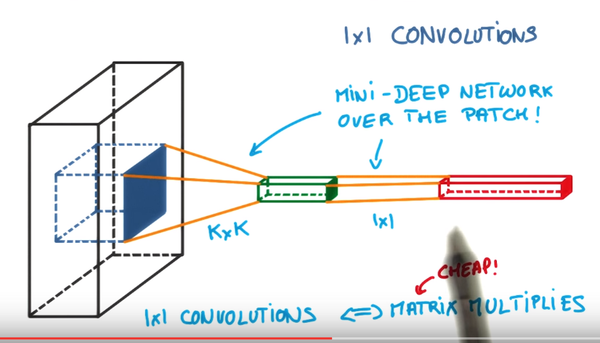 1x1 CONVOLUTIONS
MINI-DEEP NETWORK
OVER THE PATCH!
KxK
1x1
CHEAP!
1x1 CONVOLUTIONS <=> MATRIX MULTIPLIES